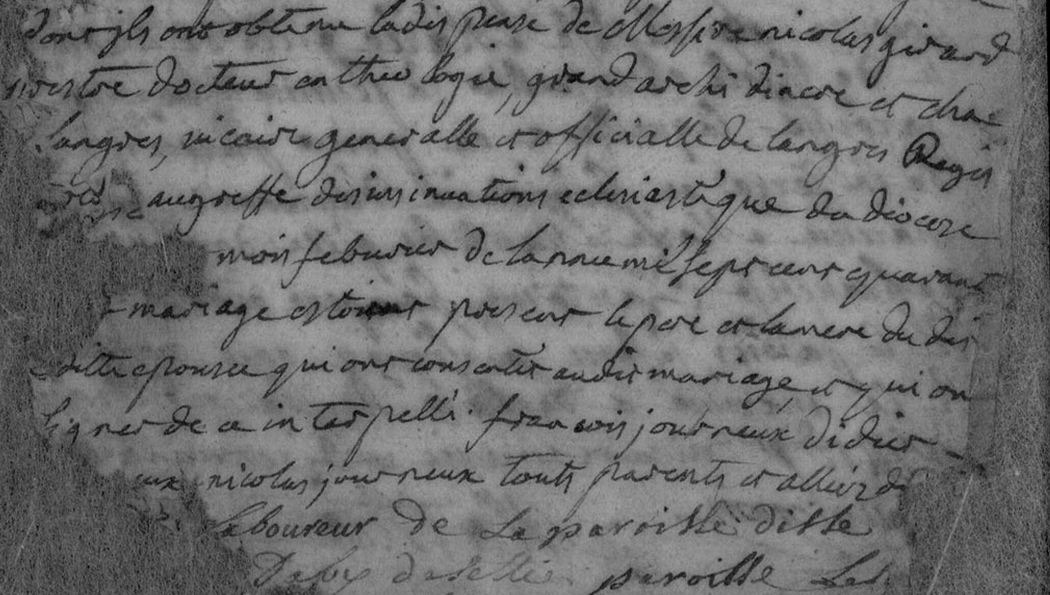 dont jls ont obtenu la dispense de Messire nicolas girard
prestre docteur en theologie, grand archi diacre et cha-
langres, vicaire generalle et officialle de langres Regis
au greffe des insinuations eclesiastique du diocese
mois feburier de lannee mil sept cent quarant
mariage estoient present le pere et la mere du dit
ditte epousee qui ont consentit audit mariage, et qui on
signer de ce interpellé. francois journeux didier -
eux nicolas journeux touts parents et alliéz de
laboureur de La paroisse ditte
paroisse